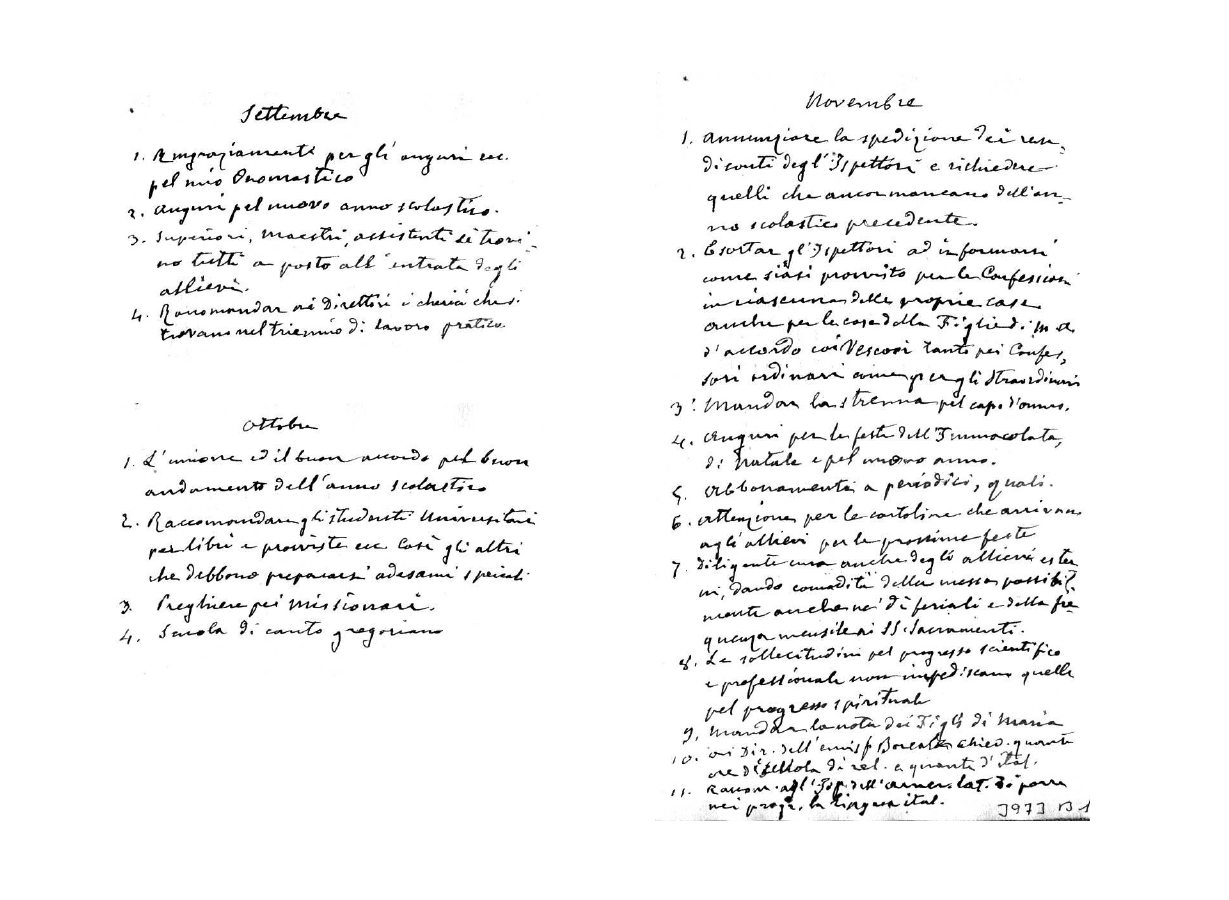 Settembre
1. Ringraziamenti per gli auguri ecc.
pel mio Onomastico
2. Auguri pel nuovo anno scolastico.
3. Superiori, Maestri, assistenti si trovi-
no tutti a posto all'entrata degli
allievi.
4. Raccomandar ai Direttori i chierici che si
trovano nel triennio di lavoro pratico.
Ottobre
1. L'unione ed il buon accordo pel buon
andamento dell'anno scolastico
2. Raccomandare gli studenti Universitari
per libri e provviste ecc. Così gli altri
che debbono prepararsi ad esami speciali
3. Preghiere pei Missionari.
4. Scuola di canto gregoriano
Novembre
1. Annunziare la spedizione dei ren-
diconti degl'Ispettori e richiedere
quelli che ancor mancano dell'an-
no scolastico precedente.
2. Esortar gl'Ispettori ad informarsi
come siasi provvisto per le Confessioni
in ciascuna delle proprie case
anche per le case delle Figlie di M A
d'accordo coi Vescovi tanto pei Confes-
sori ordinari come per gli Straordinari
3. Mandar la strenna pel capo d'anno.
4. Auguri per le feste dell'Immacolata,
di Natale e pel nuovo anno.
5. Abbonamenti a periodici, quali.
6. Attenzione per le cartoline che arrivano
agli allievi per le prossime feste
7. Diligente cura anche degli allievi ester
ni, dando comodità della messa possibil-
mente anche nei dì feriali e della fre
quenza mensile ai SS. Sacramenti.
8. Le sollecitudini pel progresso scientifico
e professionale non impediscano quelle
pel progresso spirituale
9. Mandar la nota dei Figli di Maria
10. Ai Dir. dell'emisf Boreale chied. quante
ore di scuola di rel. e quante d'ital.
11. Raccom. agl'Isp. dell'Amer. lat. di porre
nei progr. la lingua ital.
3973 B 1